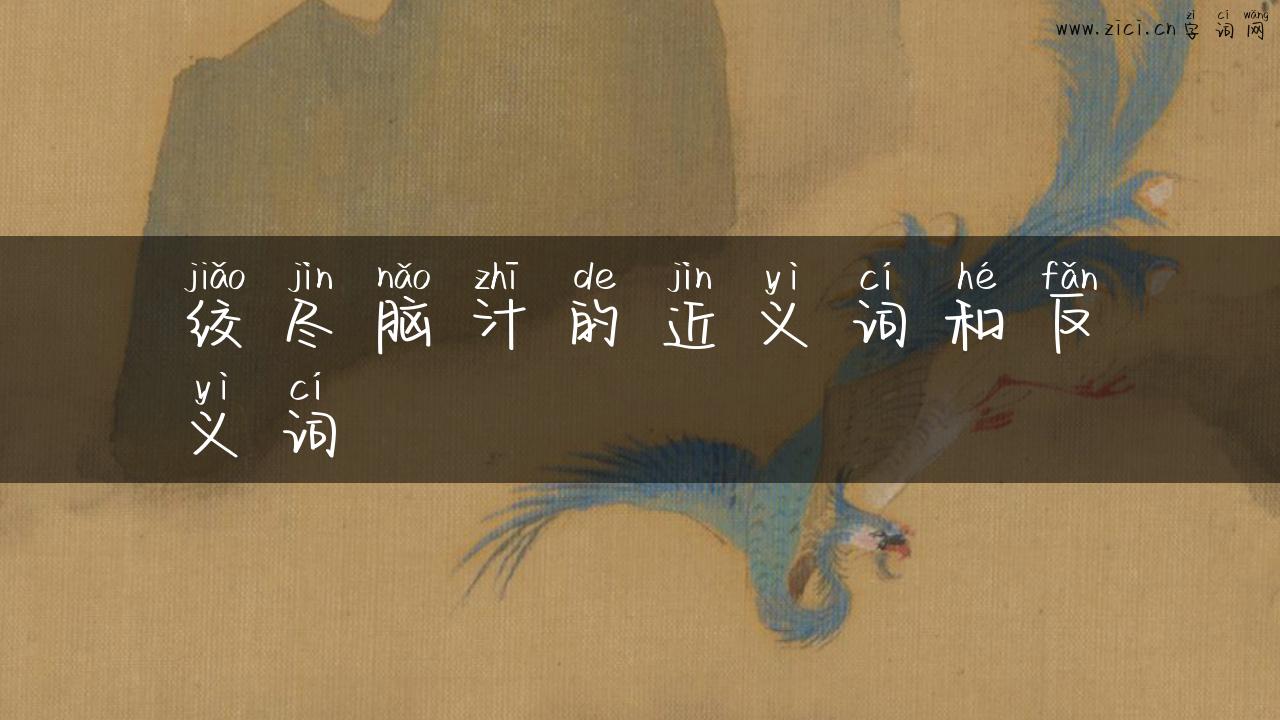 zì cí wǎng
www.zici.cn 字词网
jiǎo jìn nǎo zhī de jìn yì cí hé fǎn
绞尽脑汁的近义词和反
yì cí
义词